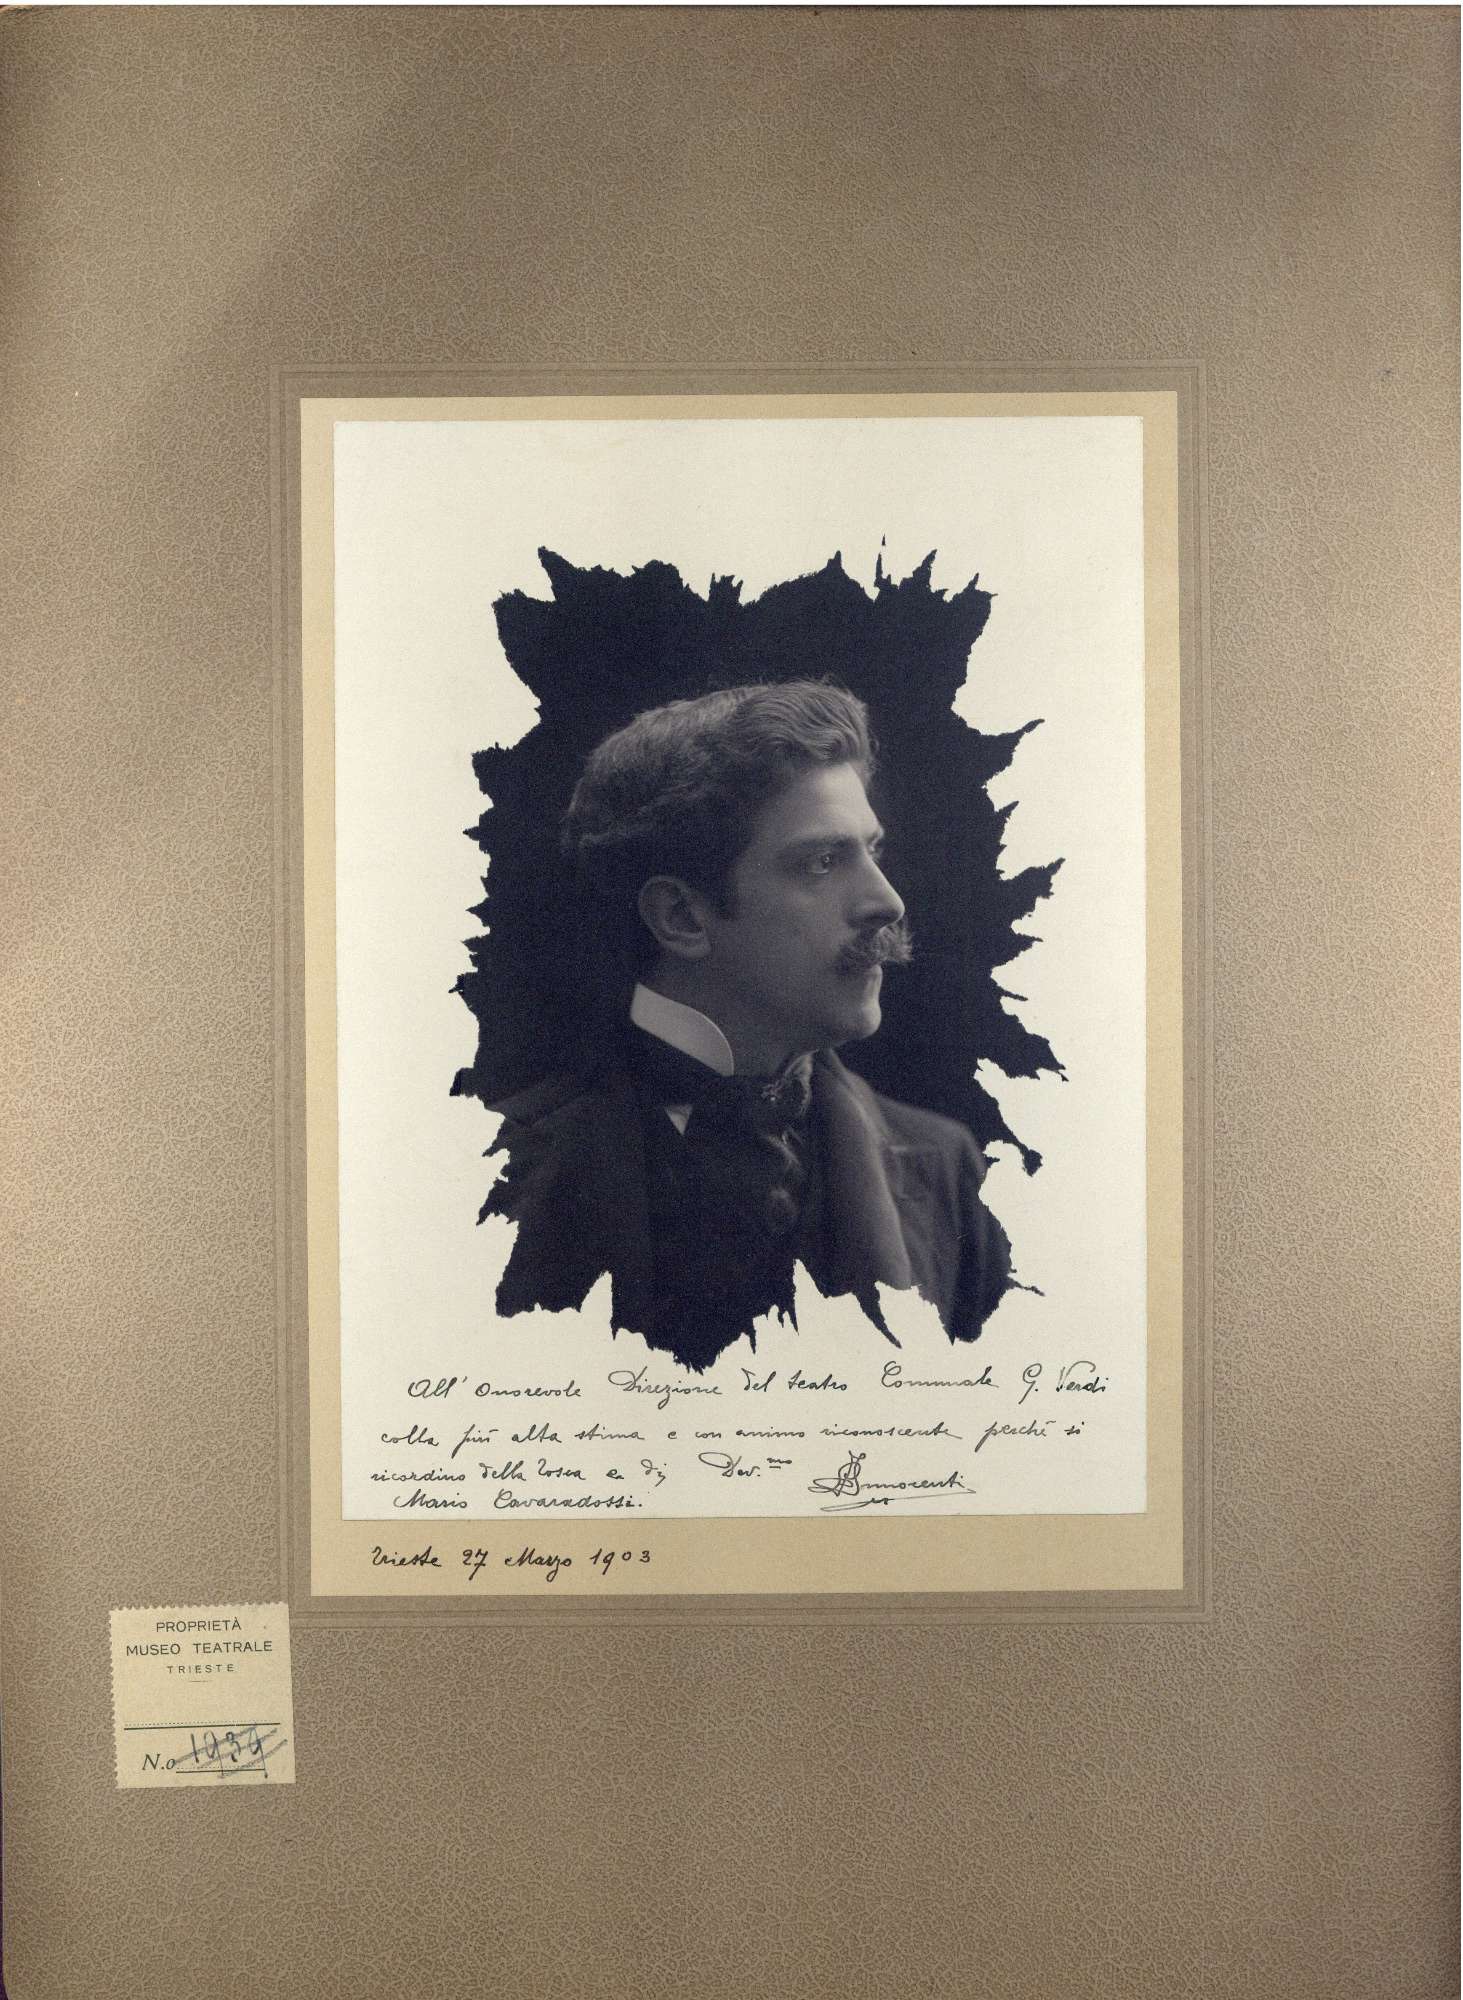 All' Onorevole Direzione del teatro Comunale G. Verdi
colla più alta stima e con animo riconoscente perché si
ricordino della Tosca e di Dev.mo Innocenti
Mario Cavaradossi.
Trieste 27 Marzo 1903
PROPRIETÀ
MUSEO TEATRALE
TRIESTE
N.o 1939